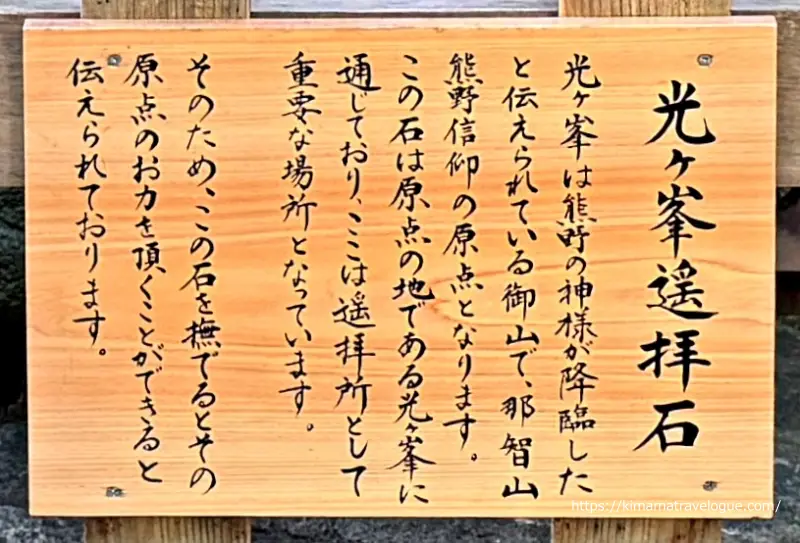 光ヶ峯遥拝石
光ヶ峯は熊野の神様が降臨した
と伝えられている御山で、那智山
熊野信仰の原点となります。
この石は原点の地である光ヶ峯に
通じており、ここは遥拝所として
重要な場所となっています。
そのため、この石を撫でるとその
原点のお力を頂くことができると
伝えられております。
https://kimamatravelogue.com/